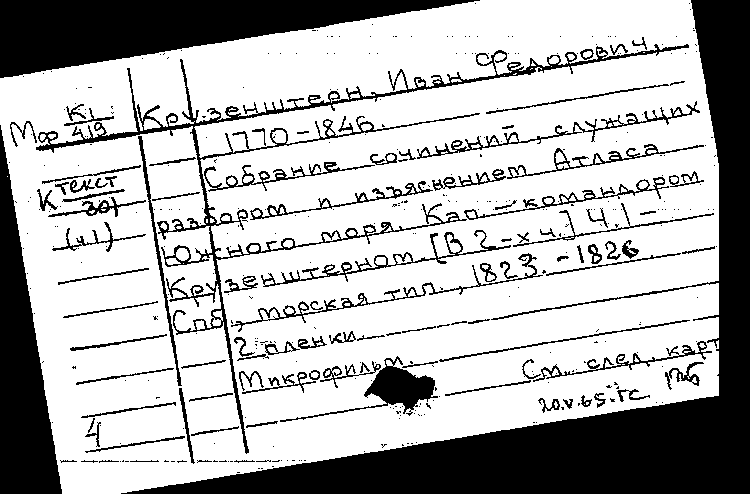 Мф К1/419 Крузенштерн, Иван Федорович,
1770-1846.
К текст/301 Собрание сочинений, служащих
(ч.1) разбором и изъяснением Атласа
Южного моря. Кап. - командором
Крузенштерном. [В 2-х ч.] Ч. 1 -
Спб, морская тип., 1823. - 1826.
2 пленки.
Микрофильм.
См. след. карт
20.V.65.
4